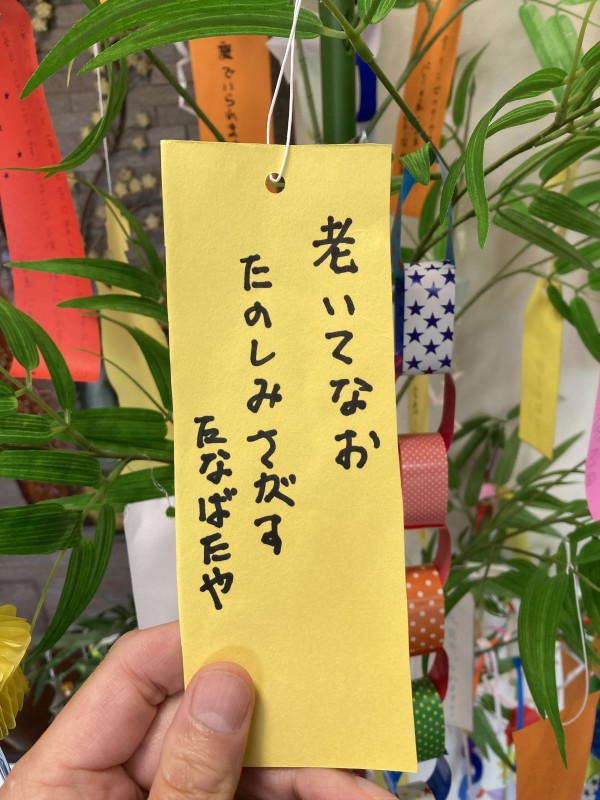 老いてなお
たのしみさがす
たなばたや
度でいられま